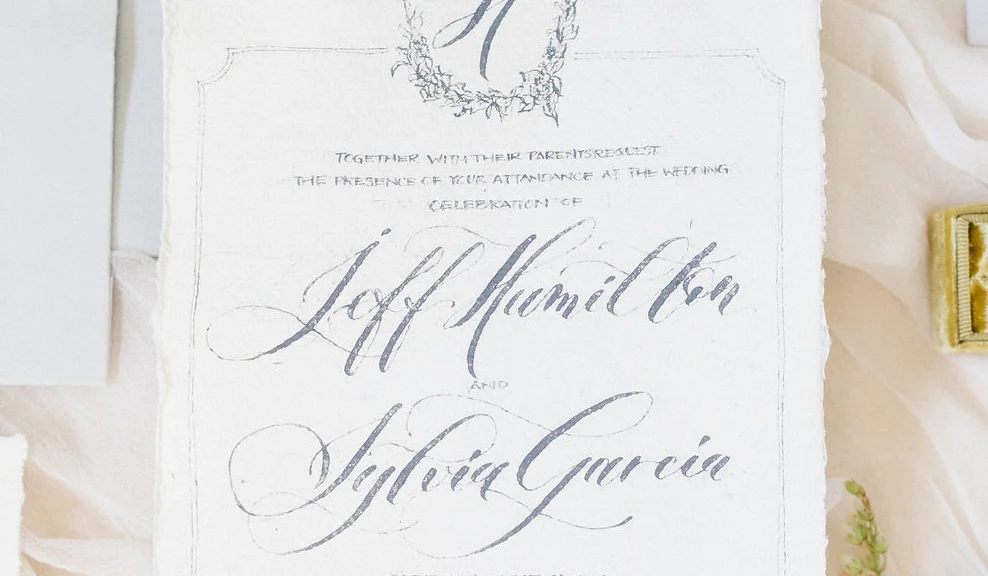 H
TOGETHER WITH THEIR PARENTS REQUEST
THE PRESENCE OF YOUR ATTANDANCE AT THE WEDDING
CELEBRATION OF
Jeff Hamilton
AND
Sylvia Garcia